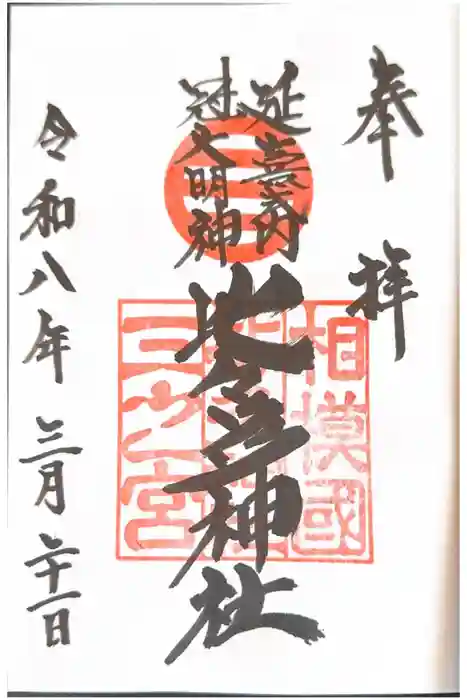 奉拝
延喜式内
冠大明神
比々多神社
相模國
三之宮
令和八年三月二十一日